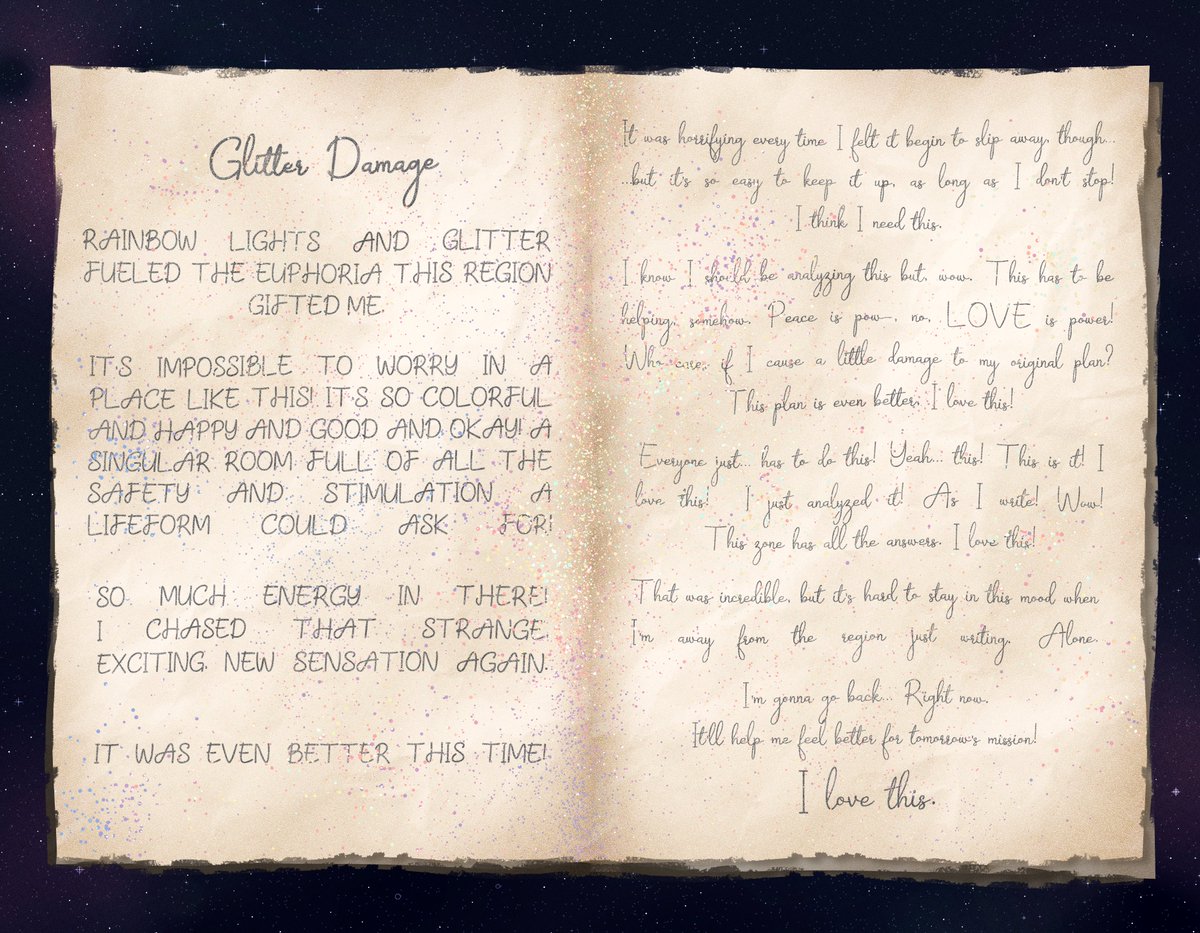 Glitter Damage
RAINBOW LIGHTS AND GLITTER
FUELED THE EUPHORIA THIS REGION
GIFTED ME.
IT'S IMPOSSIBLE TO WORRY IN A
PLACE LIKE THIS! IT'S SO COLORFUL
AND HAPPY AND GOOD AND OKAY! A
SINGULAR ROOM FULL OF ALL THE
SAFETY AND STIMULATION A
LIFEFORM COULD ASK FOR!
SO MUCH ENERGY IN THERE!
I CHASED THAT STRANGE,
EXCITING, NEW SENSATION AGAIN.
IT WAS EVEN BETTER THIS TIME!
It was horrifying every time I felt it begin to slip away, though...
...but it's so easy to keep it up, as long as I don't stop!
I think I need this.
I know I should be analyzing this but, wow. This has to be
helping, somehow. Peace is pow-, no, LOVE is power!
Who cares if I cause a little damage to my original plan?
This plan is even better. I love this!
Everyone just... has to do this! Yeah... this! This is it! I
love this! I just analyzed it! As I write! Wow!
This zone has all the answers. I love this!
That was incredible, but it's hard to stay in this mood when
I'm away from the region just writing. Alone.
I'm gonna go back... Right now.
It'll help me feel better for tomorrow's mission!
I love this.